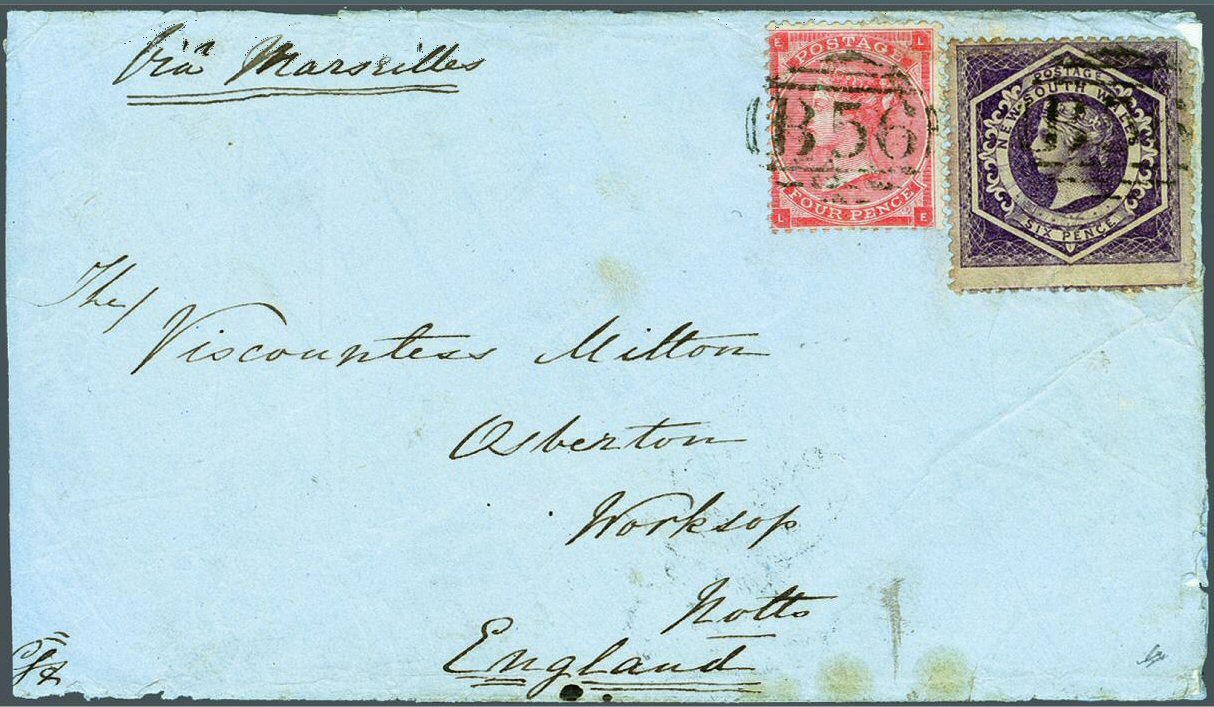 Via Marseilles
E L
POSTAGE
B56
FOUR PENCE
L E
POSTAGE
NEW SOUTH WALES
B
SIX PENCE
The
Viscountess Milton
Osberton
Worksop
Notts
England